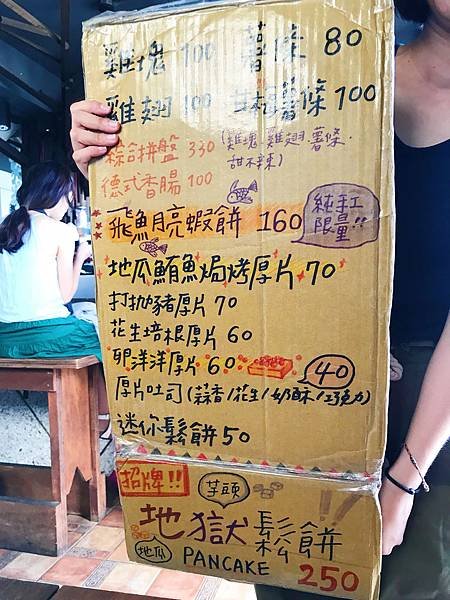 雞塊 100 薯條 80
雞翅 100 生根薯條 100
綜合拼盤 330 (雞塊 雞翅 薯條.
甜不辣)
德式香腸 100
飛魚月亮蝦餅 160
純手工
限量!!
地瓜鮪魚焗烤厚片 70
打拋豬厚片 70
花生培根厚片 60
卵洋洋厚片 60
40
厚片吐司(蒜香/花生/奶酥/巧克力)
迷你鬆餅 50
招牌!!
芋頭
地獄鬆餅
地瓜
PANCAKE 250